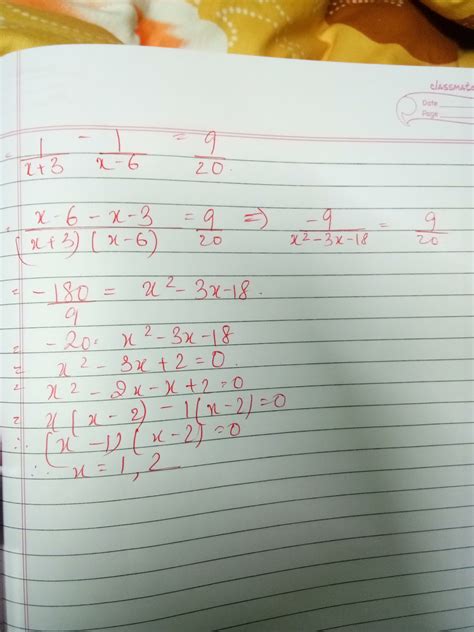 classmate
Date
Page
= 1/(x+3) - 1/(x-6) = 9/20.
∴ (x-6-x-3)/((x+3)(x-6)) = 9/20 ⇒ -9/(x²-3x-18) = 9/20
= -180/9 = x²-3x-18.
= -20= x²-3x-18
= x²-3x+2=0.
= x²-2x-x+2=0
= x(x-2)-1(x-2)=0
∴ (x-1)(x-2)=0
∴ x=1,2